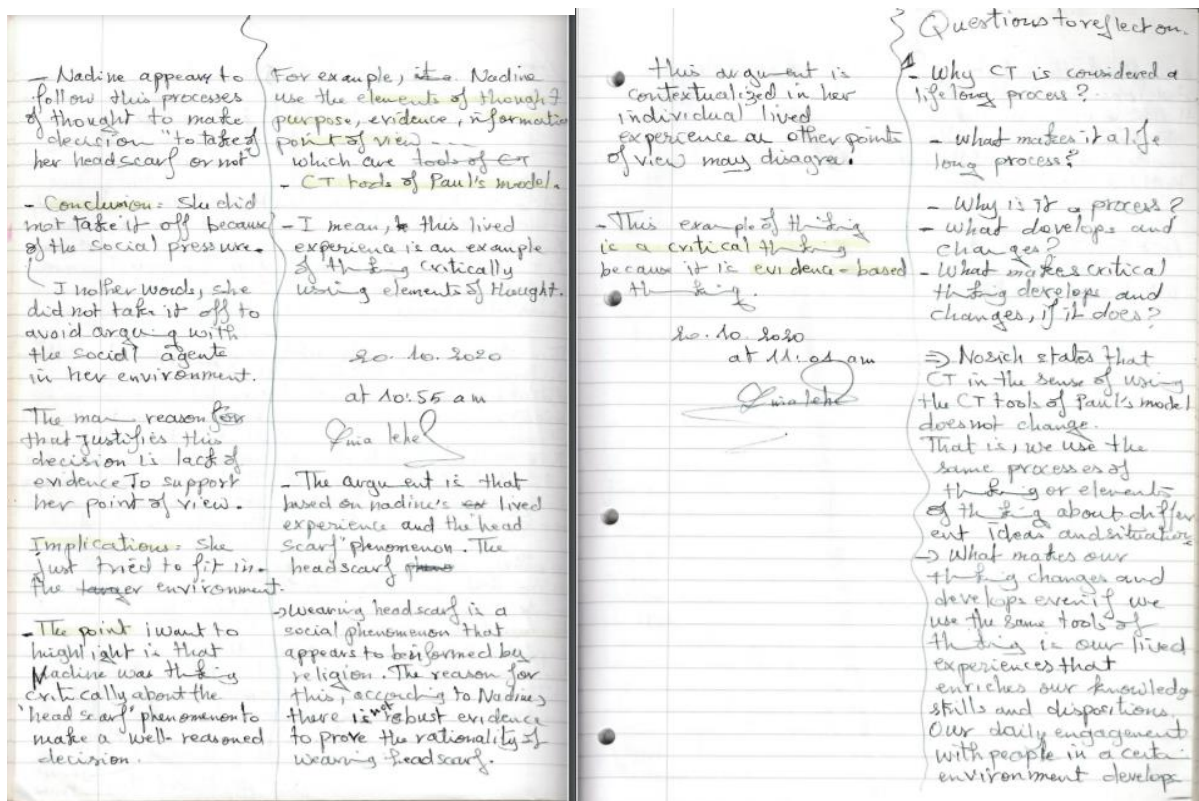 - Nadine appears to
follow this processes
of thought to make
decision "to take of
her headscarf or not"
- Conclusion: She did
not take it off because
of the social pressure.
In other words, she
did not take it off to
avoid arguing with
the social agents
in her environment.
The main reason for
that justifies this
decision is lack of
evidence to support
her point of view.
Implications: She
just tried to fit in
the larger environment.
- The point i want to
highlight is that
Nadine was thinking
critically about the
"head scarf" phenomenon to
make a well-reasoned
decision.
For example, Nadine
use the elements of thought
purpose, evidence, information
point of view ----
which are tools of CT
- CT tools of Paul's model.
- I mean, this lived
experience is an example
of thinking critically
using elements of thought.
20.10.2020
at 10:55 am
- The argument is that
based on nadine's lived
experience and the head
scarf" phenomenon. The
headscarf pheno
→ Wearing headscarf is a
social phenomenon that
appears to be informed by
religion. The reason for
this, according to Nadine,
there is not robust evidence
to prove the rationality of
wearing headscarf.
this argument is
contextualized in her
individual lived
experience as other points
of view may disagree.
- This example of thinking
is a critical thinking
because it is evidence-based
thinking.
20.10.2020
at 11:01 am
Questions to reflect on.
- Why CT is considered a
lifelong process?
- What makes it a life
long process?
- Why is it a process?
- What develops and
changes?
- What makes critical
thinking develops and
changes, if it does?
⇒ Nosich states that
CT in the sense of using
the CT tools of Paul's model
does not change.
That is, we use the
same processes of
thinking or elements
of thinking about differ
ent ideas and situations
→ What makes our
thinking changes and
develops even if we
use the same tools of
thinking is our lived
experiences that
enriches our knowledge
skills and dispositions.
Our daily engagement
with people in a certain
environment develops